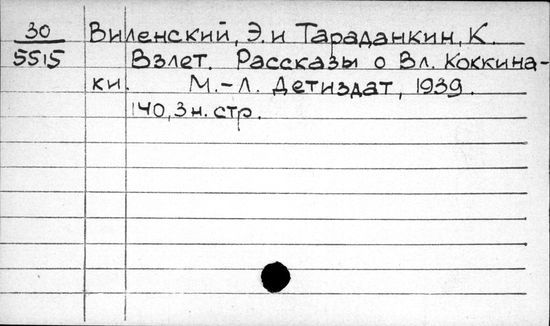 30 Виленский, Э. и Тараданкин, К.
5515 Взлет. Рассказы о Вл. Коккина-
ки. М.-Л. Детиздат, 1939.
140, 3 н. стр.